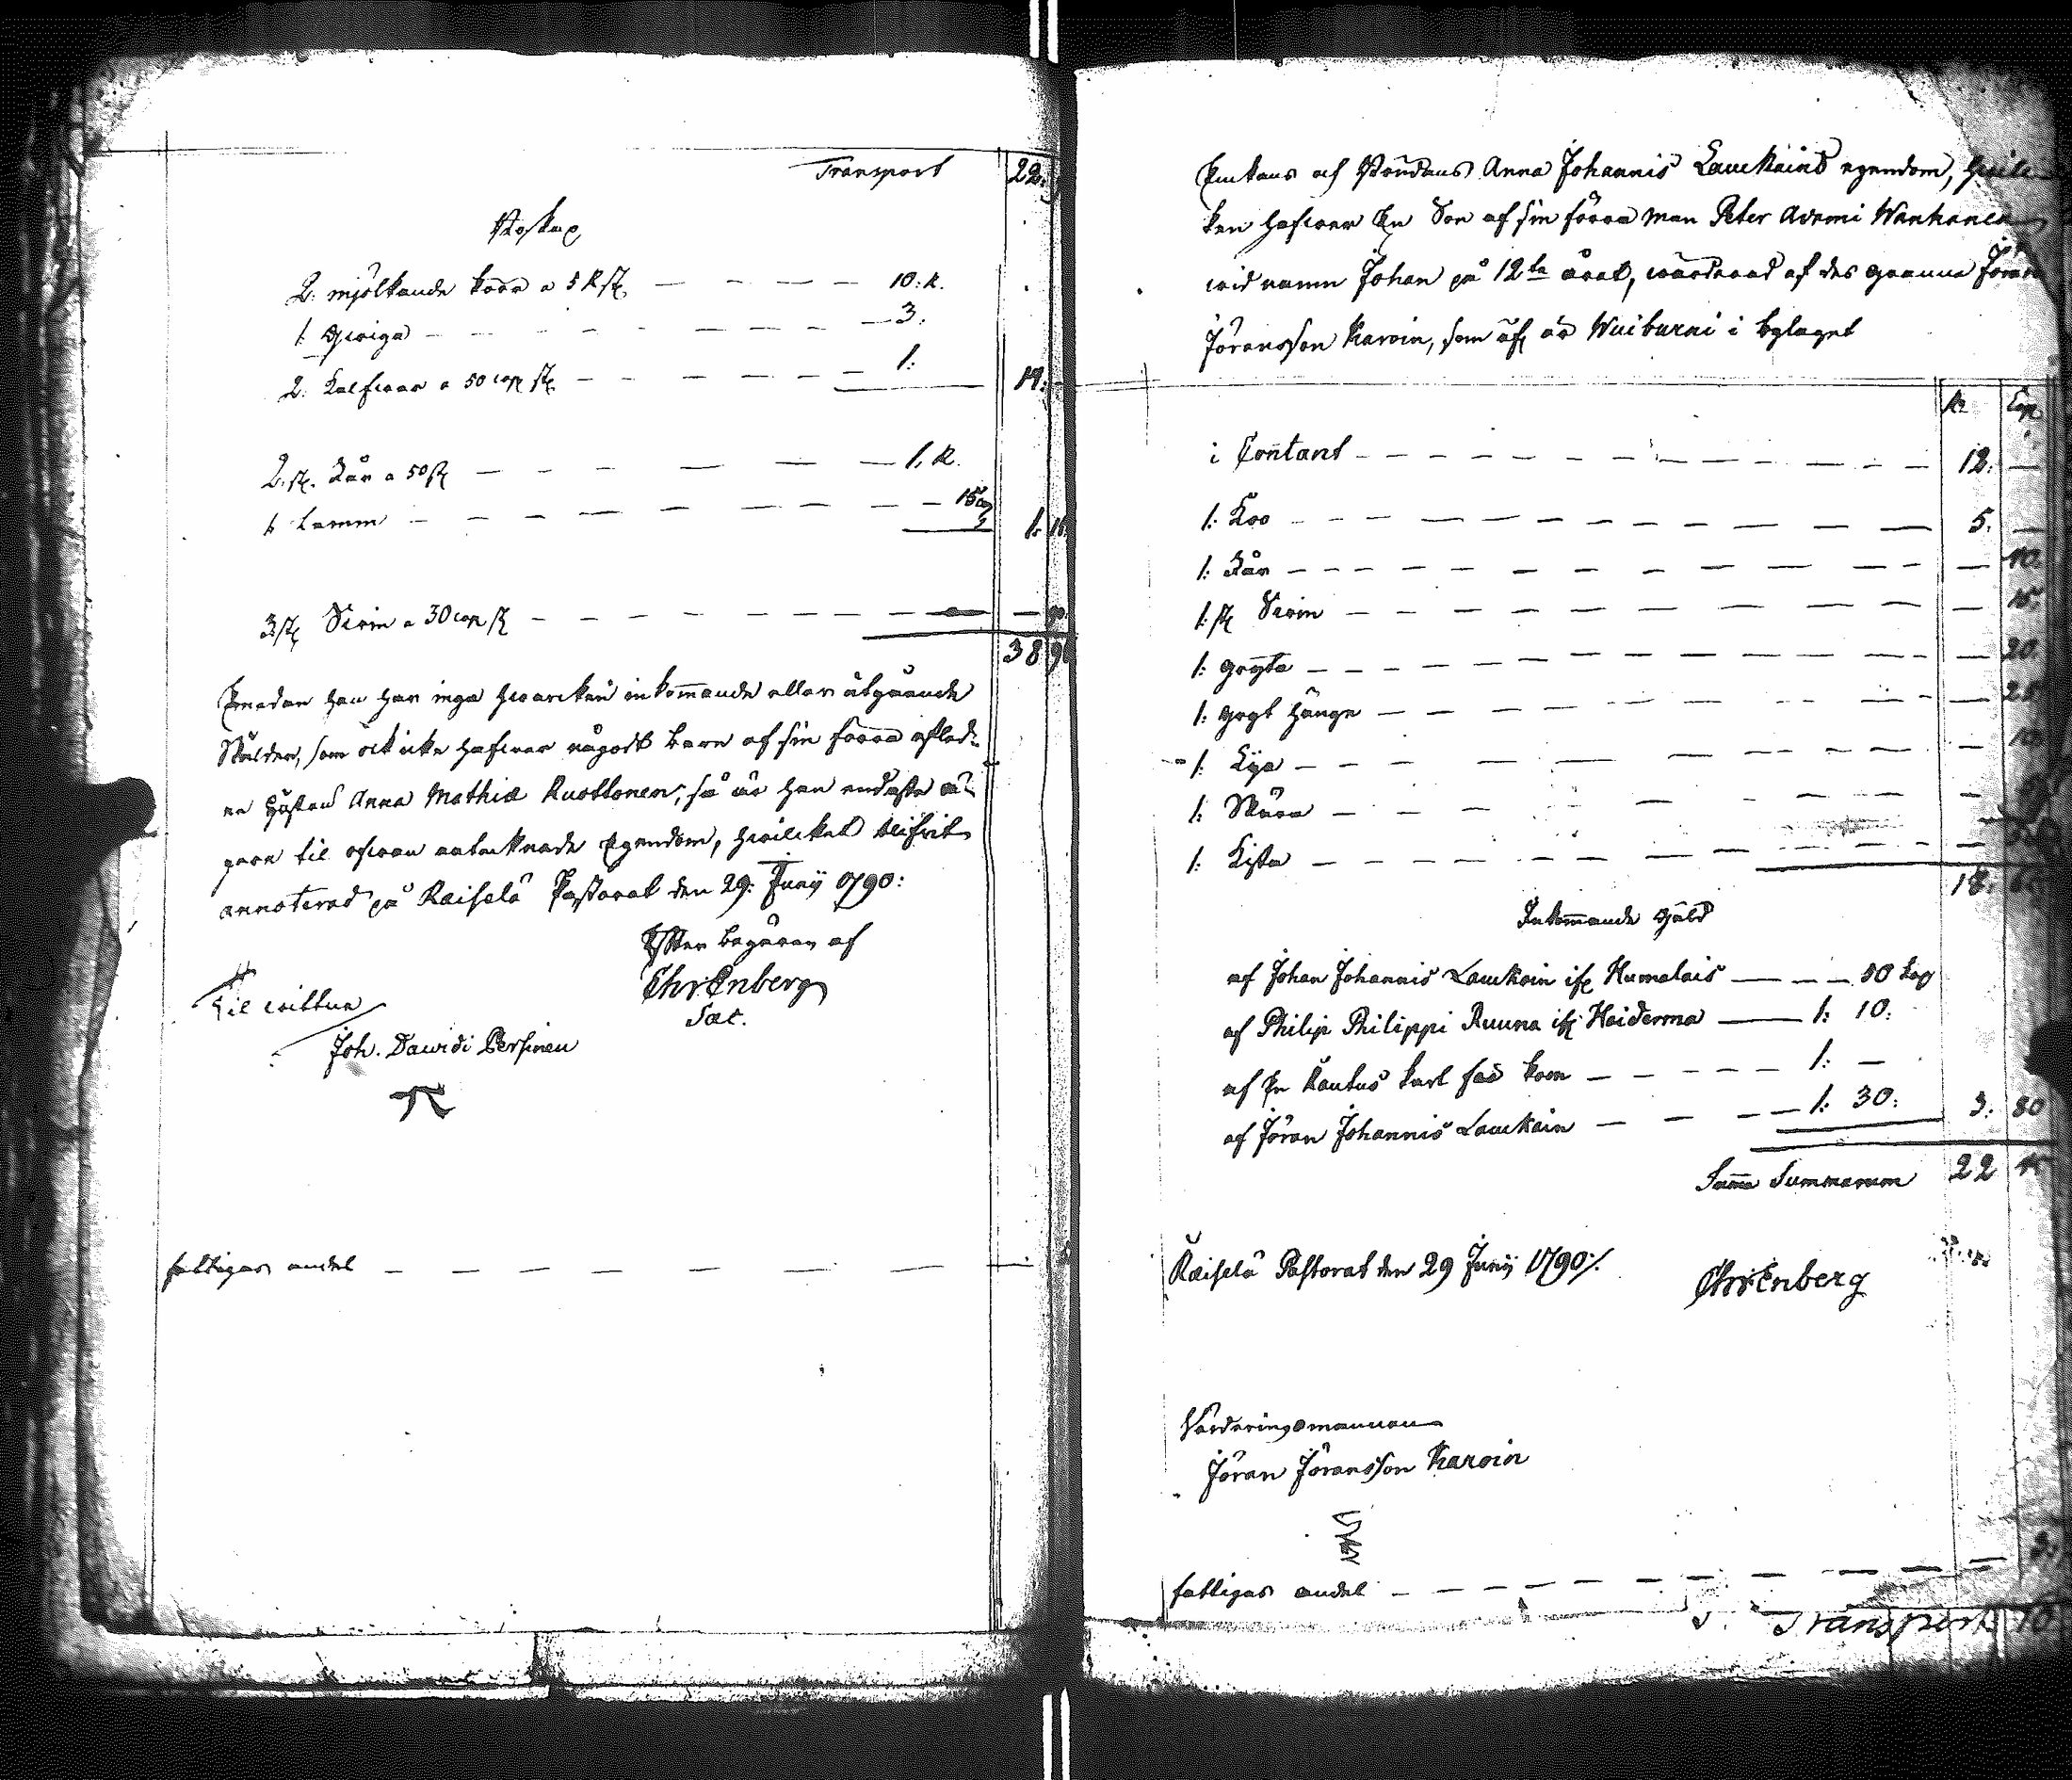 Transport 22.
Boskap
2: mjölkande koor a 5 R st. — — — — 10: R.
1. qwiga — — — — — — 3:
2. Kalfwar a 50 cop st. — — — — 1: 14: —
2. st. Får a 50 st — — — — 1. R.
1 Lamm — — — — — — 15 cop 1: 15.
3 st Swin a 30 cop st — — — — — — 90.
38 90
Emedan han har inga hwarcken inkommande eller utgående
Skulder, som ock icke hafwer någodt barn af sin förra afled-
ne Hustru Anna Mathiæ Ruottonen, så är han endaste ä-
gare til ofwan antecknade Egendom, hwilcket blifwit
annoterad på Raiselä Pastorat den 29: Junii 1790:
Efter begäran af
Ehrenberg
Sac.
Til wittne
Joh. Dawidi Persinen
fattigas andel — — — — — — —
Enkans och Bondans Anna Johannis Lauckains egendom, hwil-
ken hafwer En Son af sin förra man Peter Adami Wanhanen
wid namn Johan på 12te året, wärderad af des granne Jöran
Jöransson Karvin, som uti är Wuiburni i bolaget
R Cop
i Contant — — — — — — 12: —
1: Koo — — — — — — 5. —
1: Får — — — — — — — 40
1: st Swin — — — — — — — 15:
1: gryta — — — — — — — 20
1: gryt hänge — — — — — — — 25
1: Lya — — — — — — — 10
1: Skära — — — — — —
1: Kista — — — — — —
18: 65
Inkommande gäld
af Johan Johannis Lauckain ifr Humalais — — — 50 Kop
af Philip Philippi Ruuna ifr Heiderma — 1: 10:
af En Rautus karl för koon — — — — 1: —
af Jöran Johannis Lauckain — — — 1: 30: 3: 80
Suma Summarum 22 45
Raiselä Pastorat den 29 Junii 1790.
Ehrenberg
Värderingsmannen
Jöran Jöransson Karvin
fattigas andel — — — — — — 2:
Transport 10